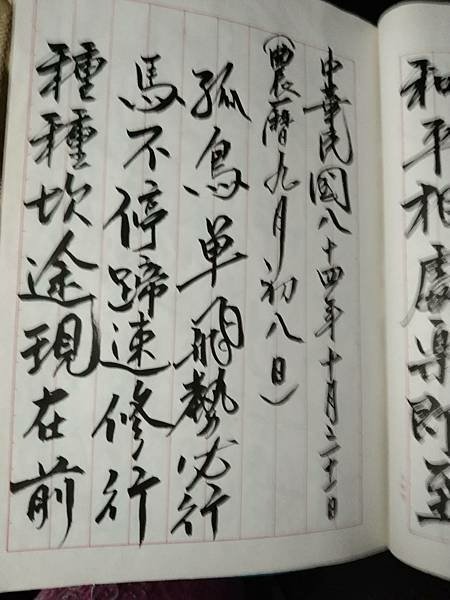 和平相處樂即至
中華民國八十四年十月三十一日
（農曆九月初八日）
孤鳥单飛勢必行
馬不停蹄速修行
種種坎途現在前